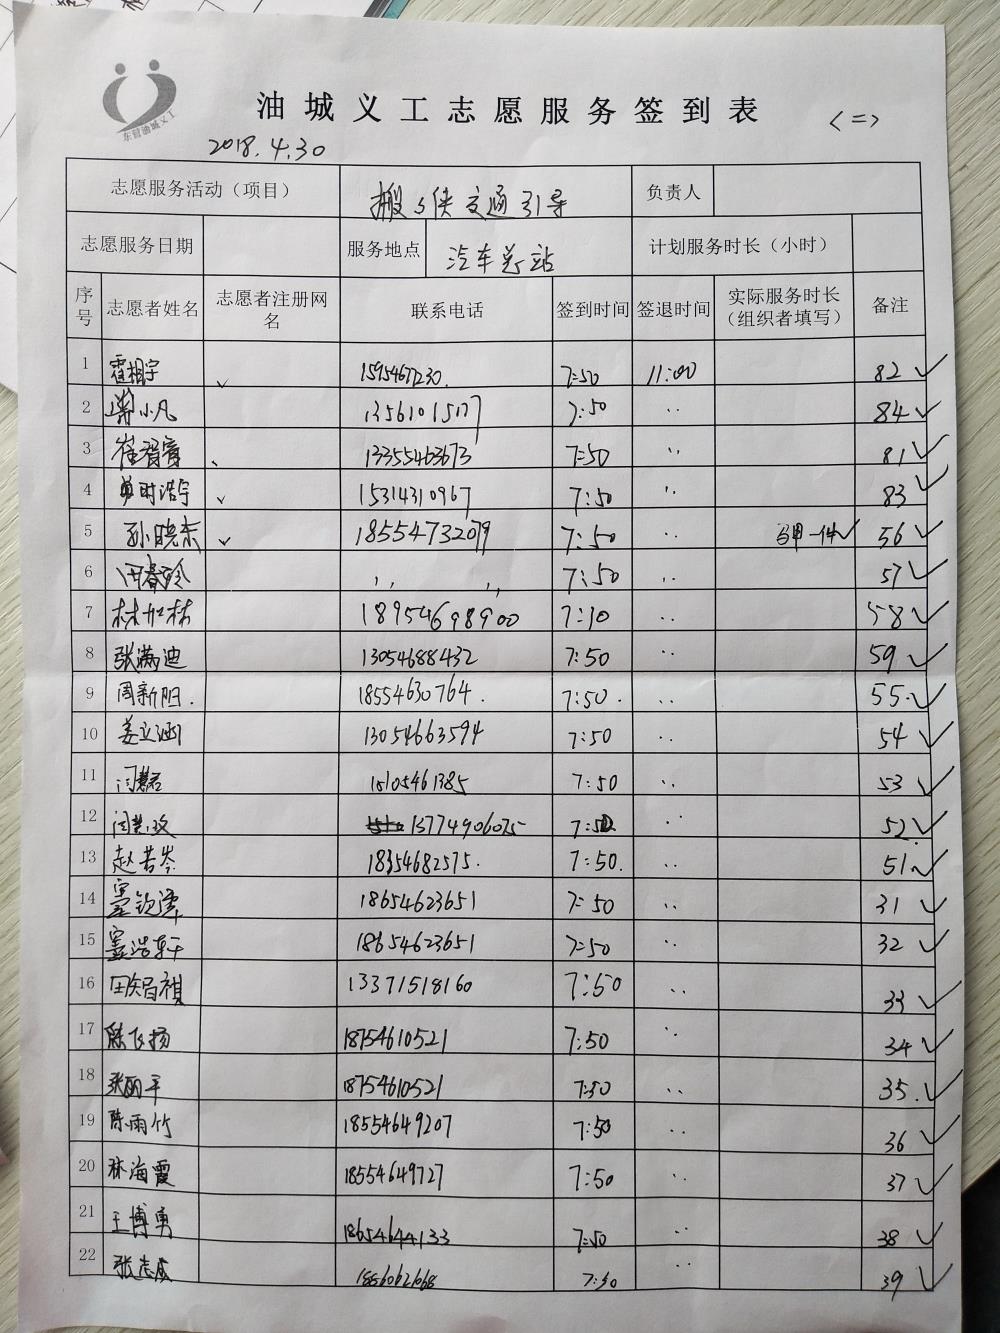 东营油城义工
油城义工志愿服务签到表
<二>
2018.4.30
志愿服务活动（项目） 搬倒侠交通引导 负责人
志愿服务日期 服务地点 汽车总站 计划服务时长（小时）
序号 志愿者姓名 志愿者注册网名 联系电话 签到时间 签退时间 实际服务时长（组织者填写） 备注
1 霍相宇 ✓ 15954671230. 7:50 11:00 82 ✓
2 小凡 13561015177 7:50 .. 84 ✓
3 崔 13355463673 7:50 .. 81 ✓
4 时浩宇 ✓ 15314310967 7:50 .. 83 ✓
5 孙晓东 ✓ 18554732079 7:50 .. 马甲一件✓ 56 ✓
6 ,, ,, 7:50 .. 57 ✓
7 林加林 18954698900 7:10 .. 58 ✓
8 张满迪 13054688432 7:50 .. 59 ✓
9 周新阳. 18554630764. 7:50. .. 55. ✓
10 姜立涵 13054663594 7:50 .. 54 ✓
11 闫 15105461385 7:50 .. 53 ✓
12 闫 13774906075 7:50 .. 52 ✓
13 赵若岑 18354682575. 7:50. .. 51 ✓
14 18654623651 7:50 .. 31 ✓
15 浩轩 18654623651 7:50 .. 32 ✓
16 13371518160 7:50 .. 33 ✓
17 陈飞扬 18754610521 7:50 .. 34 ✓
18 张丽平 18754610521 7:50 .. 35. ✓
19 陈雨竹 18554649207 7:50 .. 36 ✓
20 林海霞 18554649727 7:50 .. 37 ✓
21 王博勇 18654644133 7:50 .. 38 ✓
22 张志成 7:50 .. 39 ✓